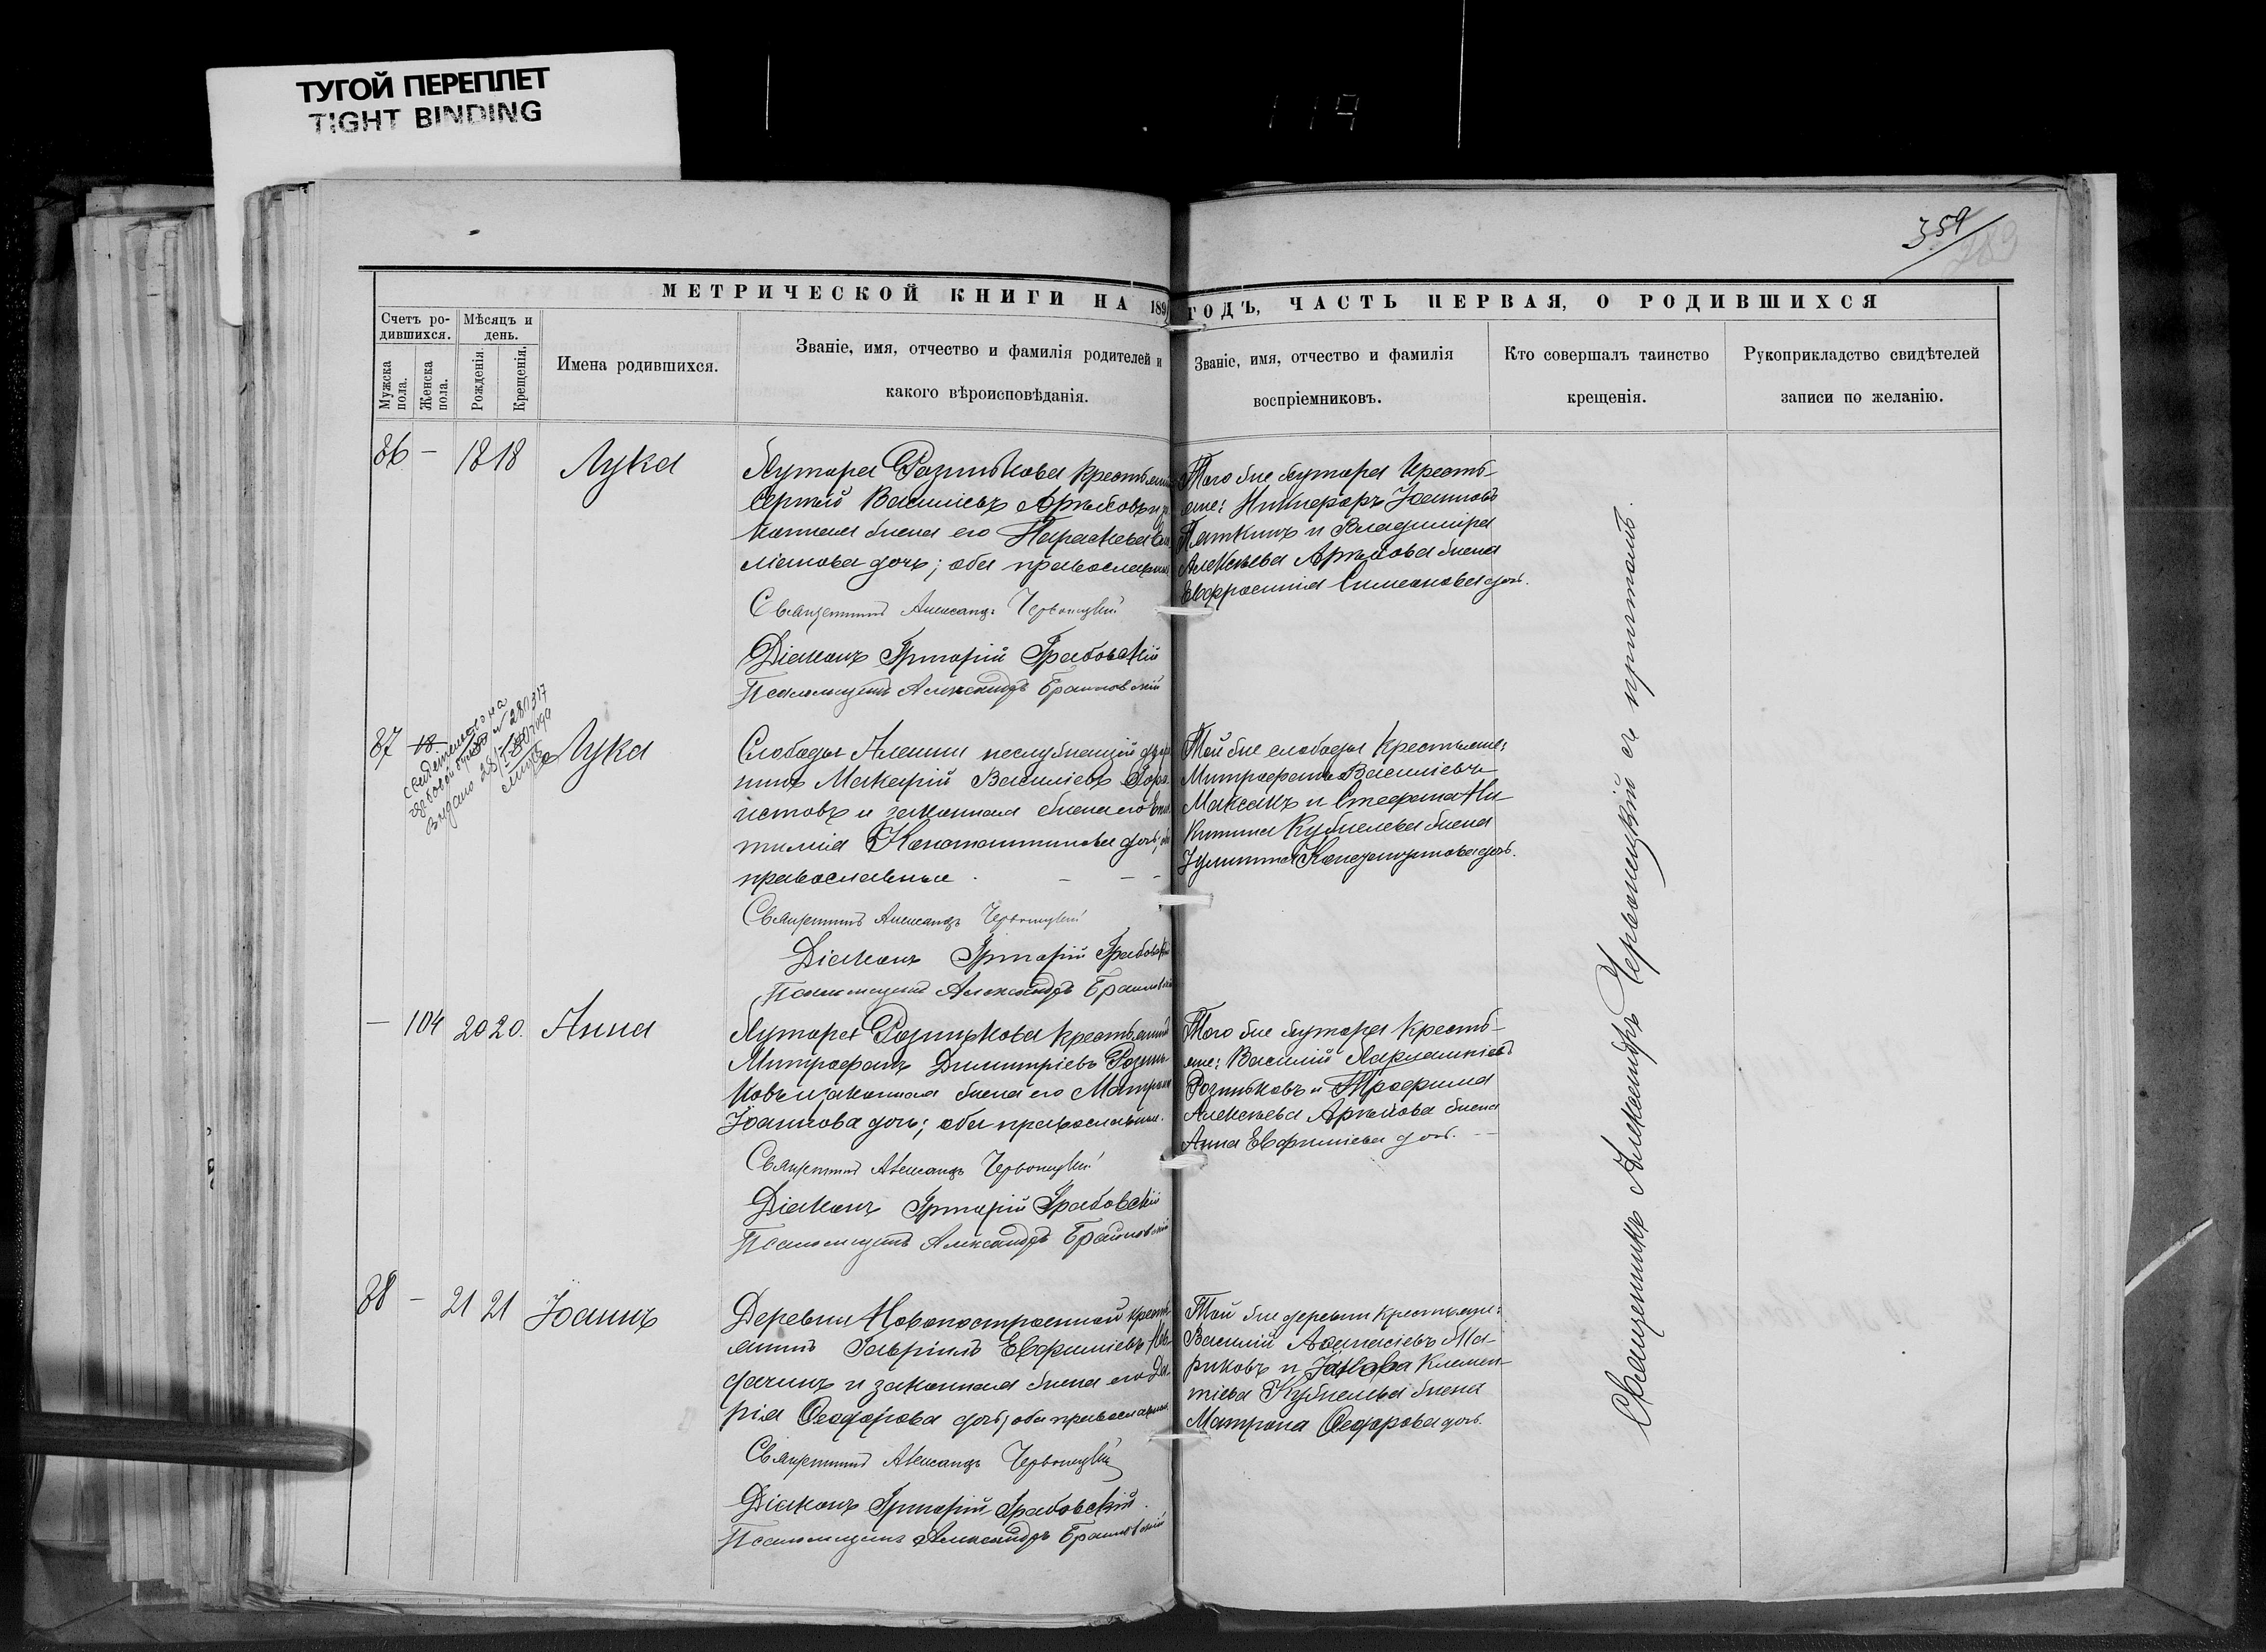 ТУГОЙ ПЕРЕПЛЕТ
TIGHT BINDING
119
359
МЕТРИЧЕСКОЙ КНИГИ НА 189
ГОДЪ, ЧАСТЬ ПЕРВАЯ, О РОДИВШИХСЯ
Счетъ ро-
дившихся.
Мѣсяцъ и
день.
Мужска
пола.
Женска
пола.
Рожденія.
Крещенія.
Имена родившихся.
Званіе, имя, отчество и фамилія родителей и
какого вѣроисповѣданія.
Званіе, имя, отчество и фамилія
воспріемниковъ.
Кто совершалъ таинство
крещенія.
Рукоприкладство свидѣтелей
записи по желанію.
86 – 18 18 Лука
Хутора Розинькова крестьянинъ
Сергій Василіевъ Арѣховъ и за
конная жена его Параскева
дочь; оба православные
Священникъ Александръ Червонецкій
Діаконъ Григорій Грабовскій
Псаломщикъ Александръ
Того же хутора кресть-
яне: Никифоръ Іоанновъ
Пяткинъ и Владиміра
Алексѣева Арѣхова жена
Евфросинія Симеонова дочь.
87 18 Лука
Слободы Алешни неслужащій
Макарій Василіевъ
и законная жена его
дочь;
православные.
Священникъ Александръ Червонецкій
Діаконъ Григорій Грабовскій
Псаломщикъ Александръ
Той же слободы крестьяне:
Митрофанъ Василіевъ
Максакъ и Стефана Ни-
китина Кубжелева жена
Іулитта дочь.
– 104 20 20. Анна
Хутора Розинькова крестьянинъ
Митрофанъ Димитріевъ Розинь-
ковъ и законная жена его Матрона
Іоаннова дочь; оба православные.
Священникъ Александръ Червонецкій
Діаконъ Григорій Грабовскій
Псаломщикъ Александръ
Того же хутора кресть-
яне: Василій Варлампіевъ
Розиньковъ и Трофима
Алексѣева Арѣхова жена
Анна Евфиміева дочь. –
88 – 21 21 Іоаннъ
Деревни Новопостроенной кресть-
янинъ Гавріилъ Евфиміевъ
и законная жена его Да-
рія Ѳеодорова дочь; оба православные.
Священникъ Александръ Червонецкій
Діаконъ Григорій Грабовскій.
Псаломщикъ Александръ
Той же деревни крестьяне:
Василій Аѳанасіевъ Ма-
риковъ и Іакова Климен-
тіева Кубжелева жена
Матрона Ѳеодорова дочь.
Священникъ Александръ Червонецкій съ причтомъ.